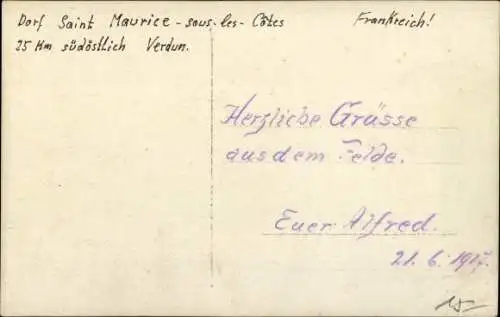 Dorf Saint Maurice-sous-les-Côtes Frankreich!
25 Km südöstlich Verdun.
Herzliche Grüsse
aus dem Felde.
Euer Alfred.
21. 6. 1917.
15-